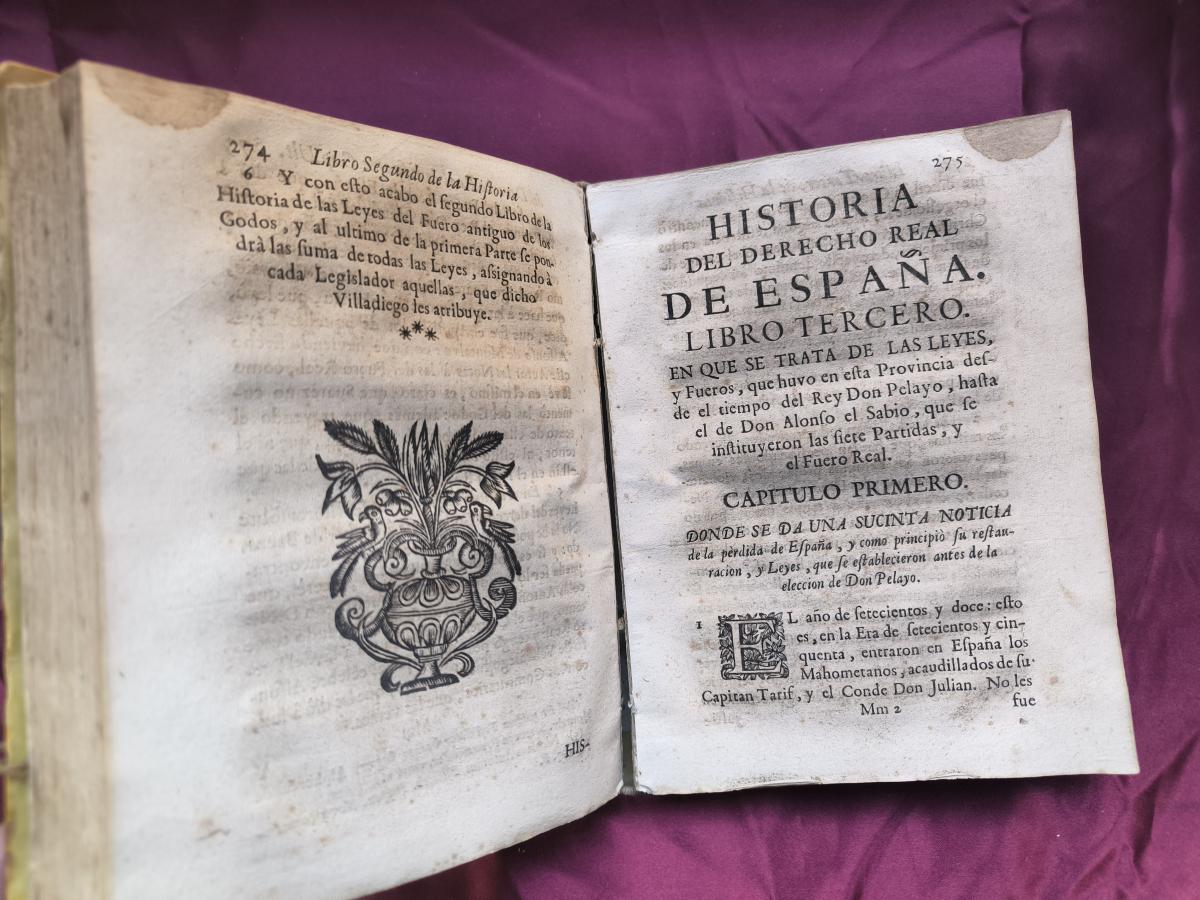 274 Libro Segundo de la Hiſtoria
6 Y con eſto acabo el ſegundo Libro de la
Hiſtoria de las Leyes del Fuero antiguo de los
Godos, y al ultimo de la primera Parte ſe pon-
drà las ſuma de todas las Leyes, aſsignando à
cada Legislador aquellas, que dicho
Villadiego les atribuye.
***
HIS-
275
HISTORIA
DEL DERECHO REAL
DE ESPAÑA.
LIBRO TERCERO.
EN QUE SE TRATA DE LAS LEYES,
y Fueros, que huvo en eſta Provincia deſ-
de el tiempo del Rey Don Pelayo, haſta
el de Don Alonſo el Sabio, que ſe
inſtituyeron las ſiete Partidas, y
el Fuero Real.
CAPITULO PRIMERO.
DONDE SE DA UNA SUCINTA NOTICIA
de la pèrdida de Eſpaña, y como principiò ſu reſtau-
racion, y Leyes, que ſe eſtablecieron antes de la
eleccion de Don Pelayo.
1 EL año de ſetecientos y doce: eſto
es, en la Era de ſetecientos y cin-
quenta, entraron en Eſpaña los
Mahometanos, acaudillados de ſu
Capitan Tarif, y el Conde Don Julian. No les
Mm 2 fue